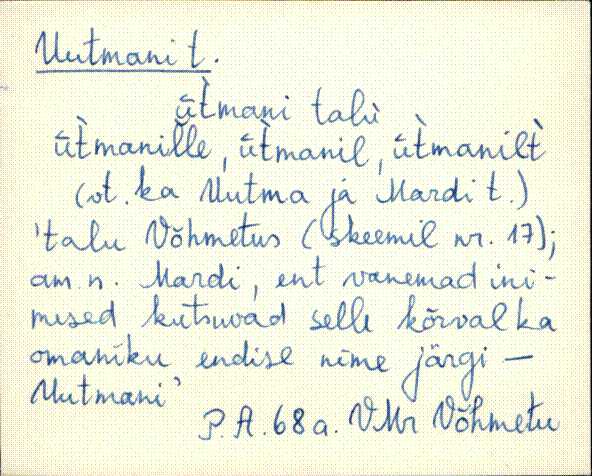 Uutmani t.
ūt̀mani talù
ūt̀manille, ūt̀manil, ūt̀manilt̀
(vt. ka Uutma ja Mardi t.)
'talu Võhmetus (skeemil nr. 17);
am. n. Mardi, ent vanemad ini-
mesed kutsuvad selle kõrval ka
omaniku endise nime järgi —
Uutmani'
P.A. 68 a. VMr Võhmetu